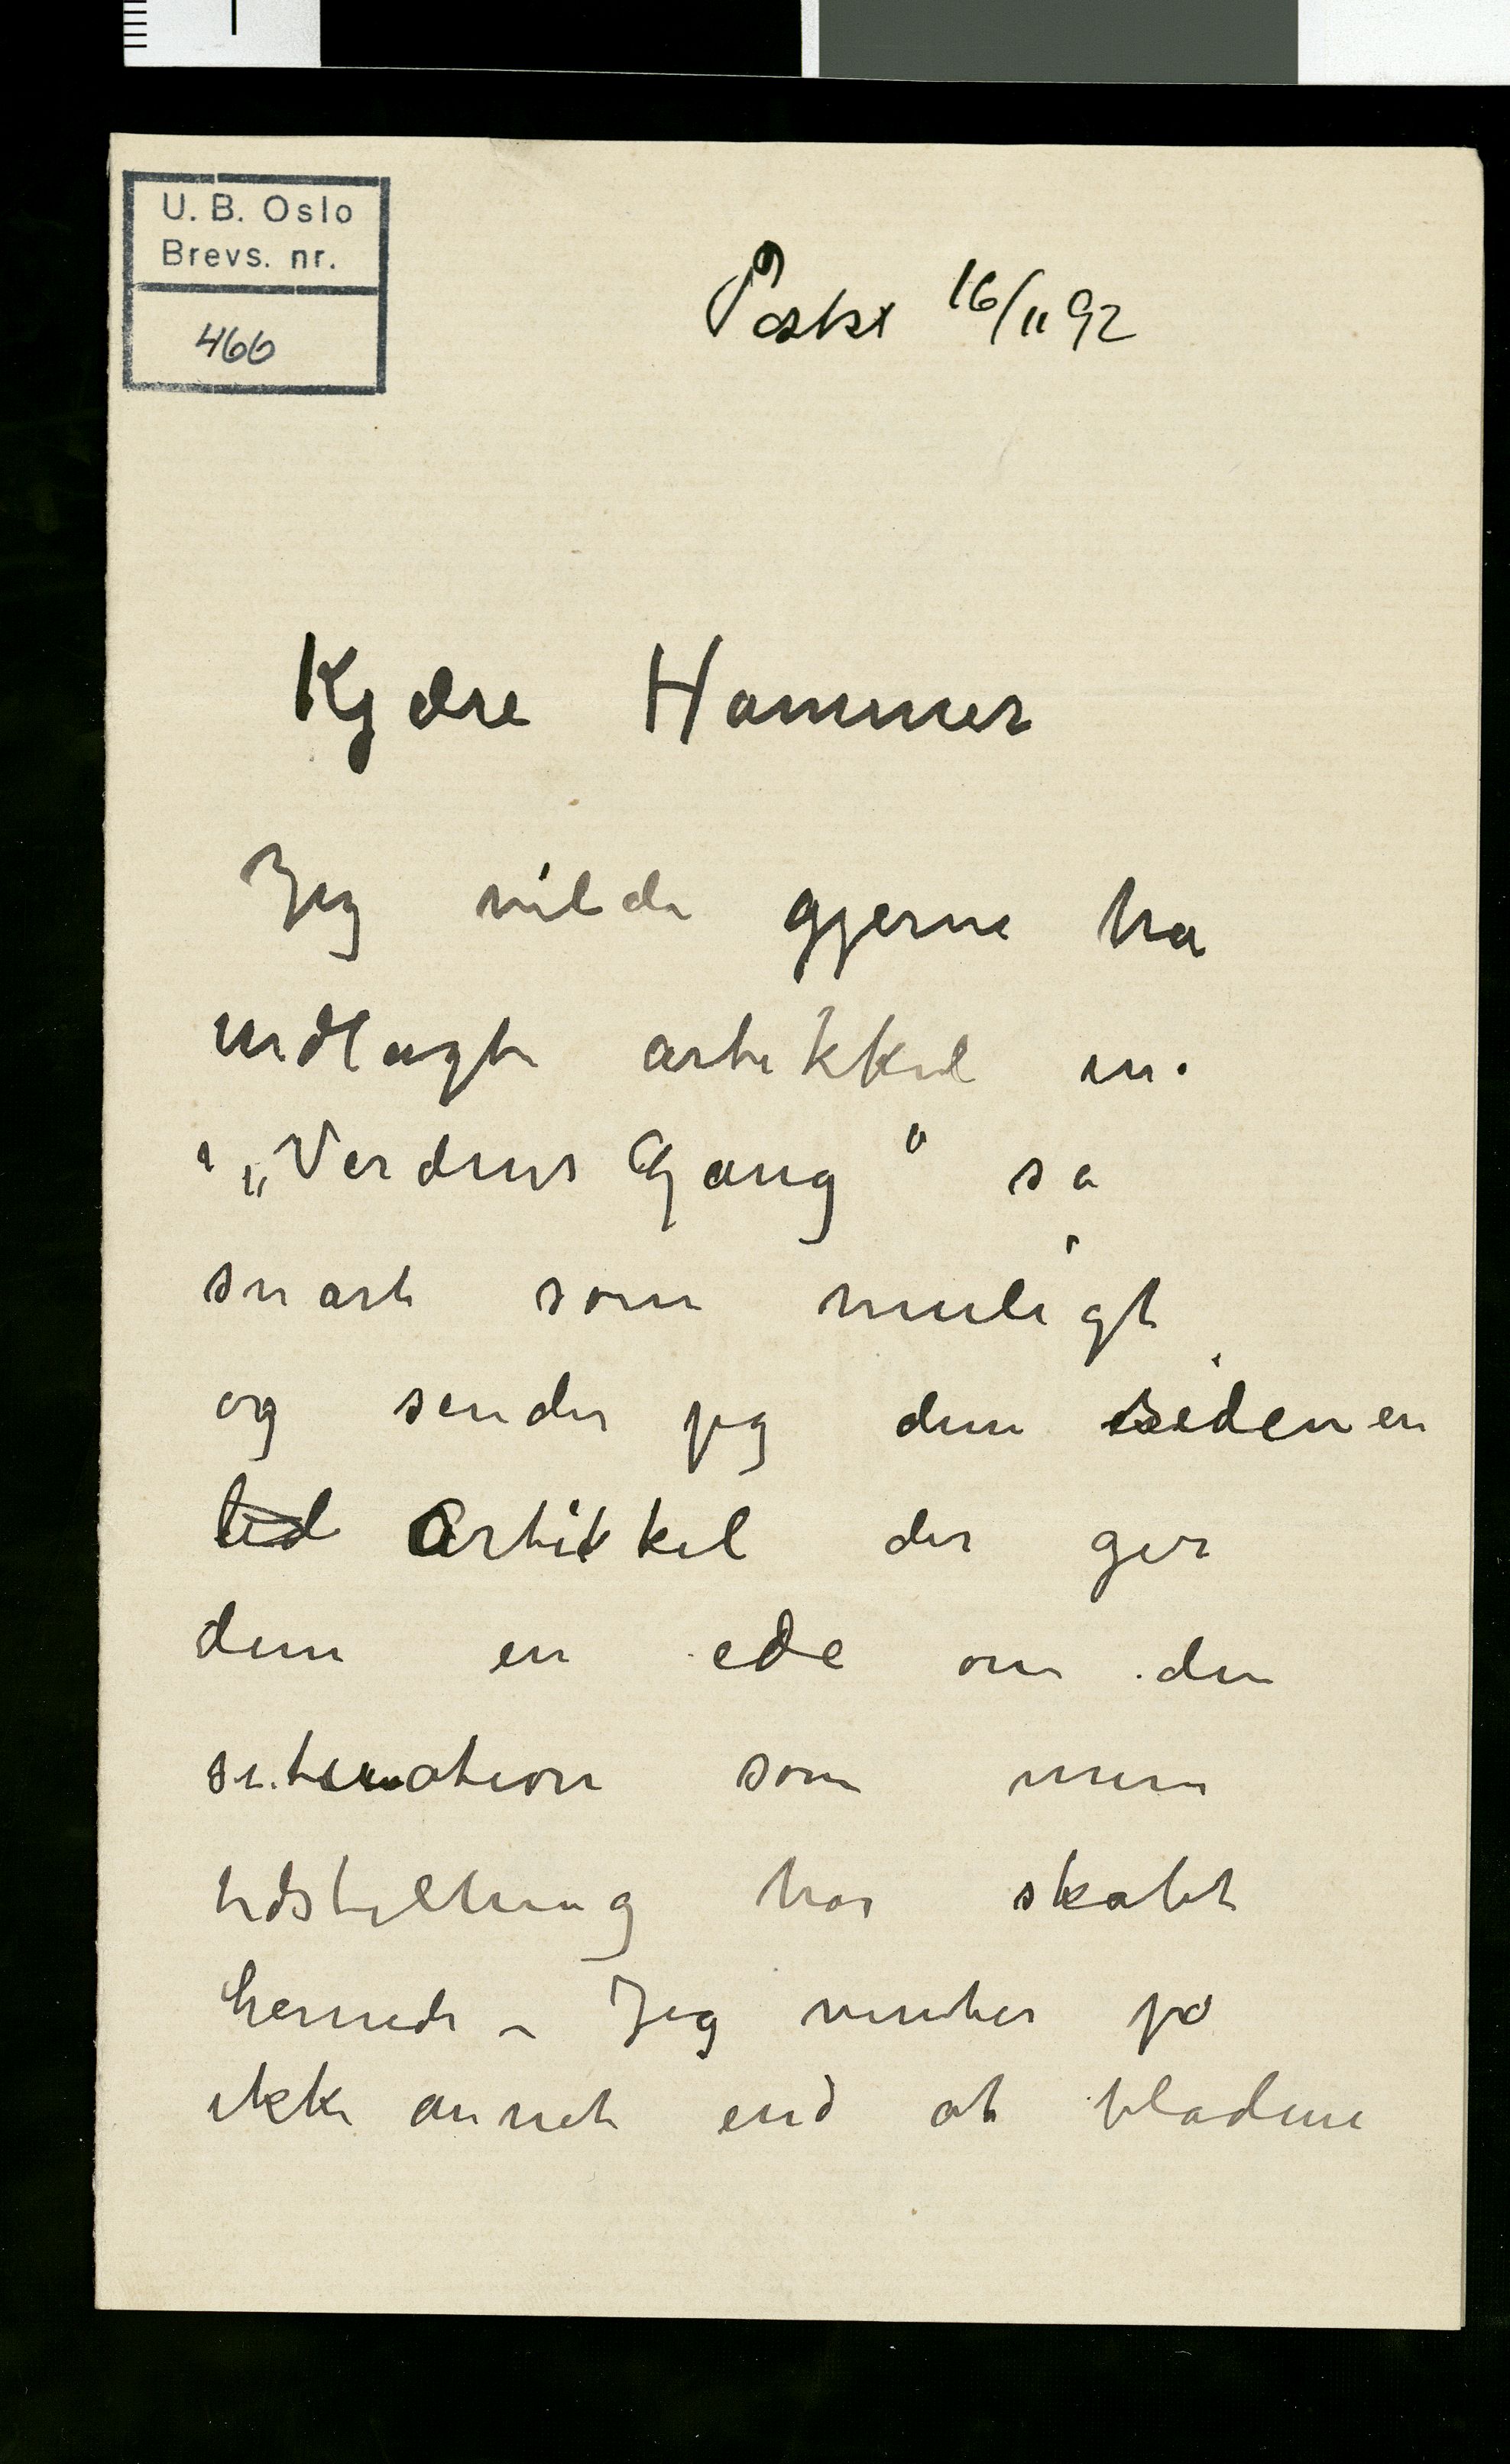 U. B. Oslo
Brevs. nr.
466
Postst 16/11 92
Kjære Hammer
Jeg vilde gjerne ha
indlagte artikkel in
i „Verdens Gang“ så
snart som muligt
og sender jeg dem siden en
artikkel der gir
dem en ide om den
situation som min
udstilling har skabt
hernede – Jeg venter på
ikke annet end at bladene